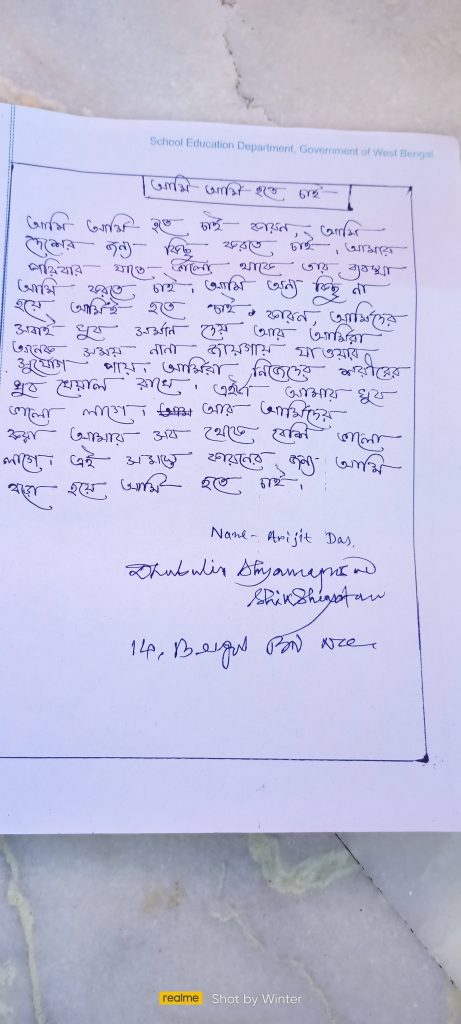 School Education Department, Government of West Bengal
আমি আমি হতে চাই
আমি আমি হতে চাই কারন, আমি
দেশের জন্য কিছু করতে চাই, আমার
পরিবার যাতে ভালো থাকে তার ব্যবস্থা
আমি করতে চাই। আমি অন্য কিছু না
হয়ে আমিই হতে চাই, কারন, আমিদের
সবাই খুব সম্মান দেয় আর আমিরা
অনেক সময় নানা জায়গায় যাওয়ার
সুযোগ পায়। আমিরা নিজেদের শরীরের
খুব খেয়াল রাখে। এইটা আমার খুব
ভালো লাগে। আর আমিদের
আমার সব থেকে বেশি ভালো
লাগে। এই সমস্ত কারনের জন্য আমি
বড়ো হয়ে আমি হতে চাই।
Name- Arijit Das.
Dhubulia
14,
realme Shot by Winter